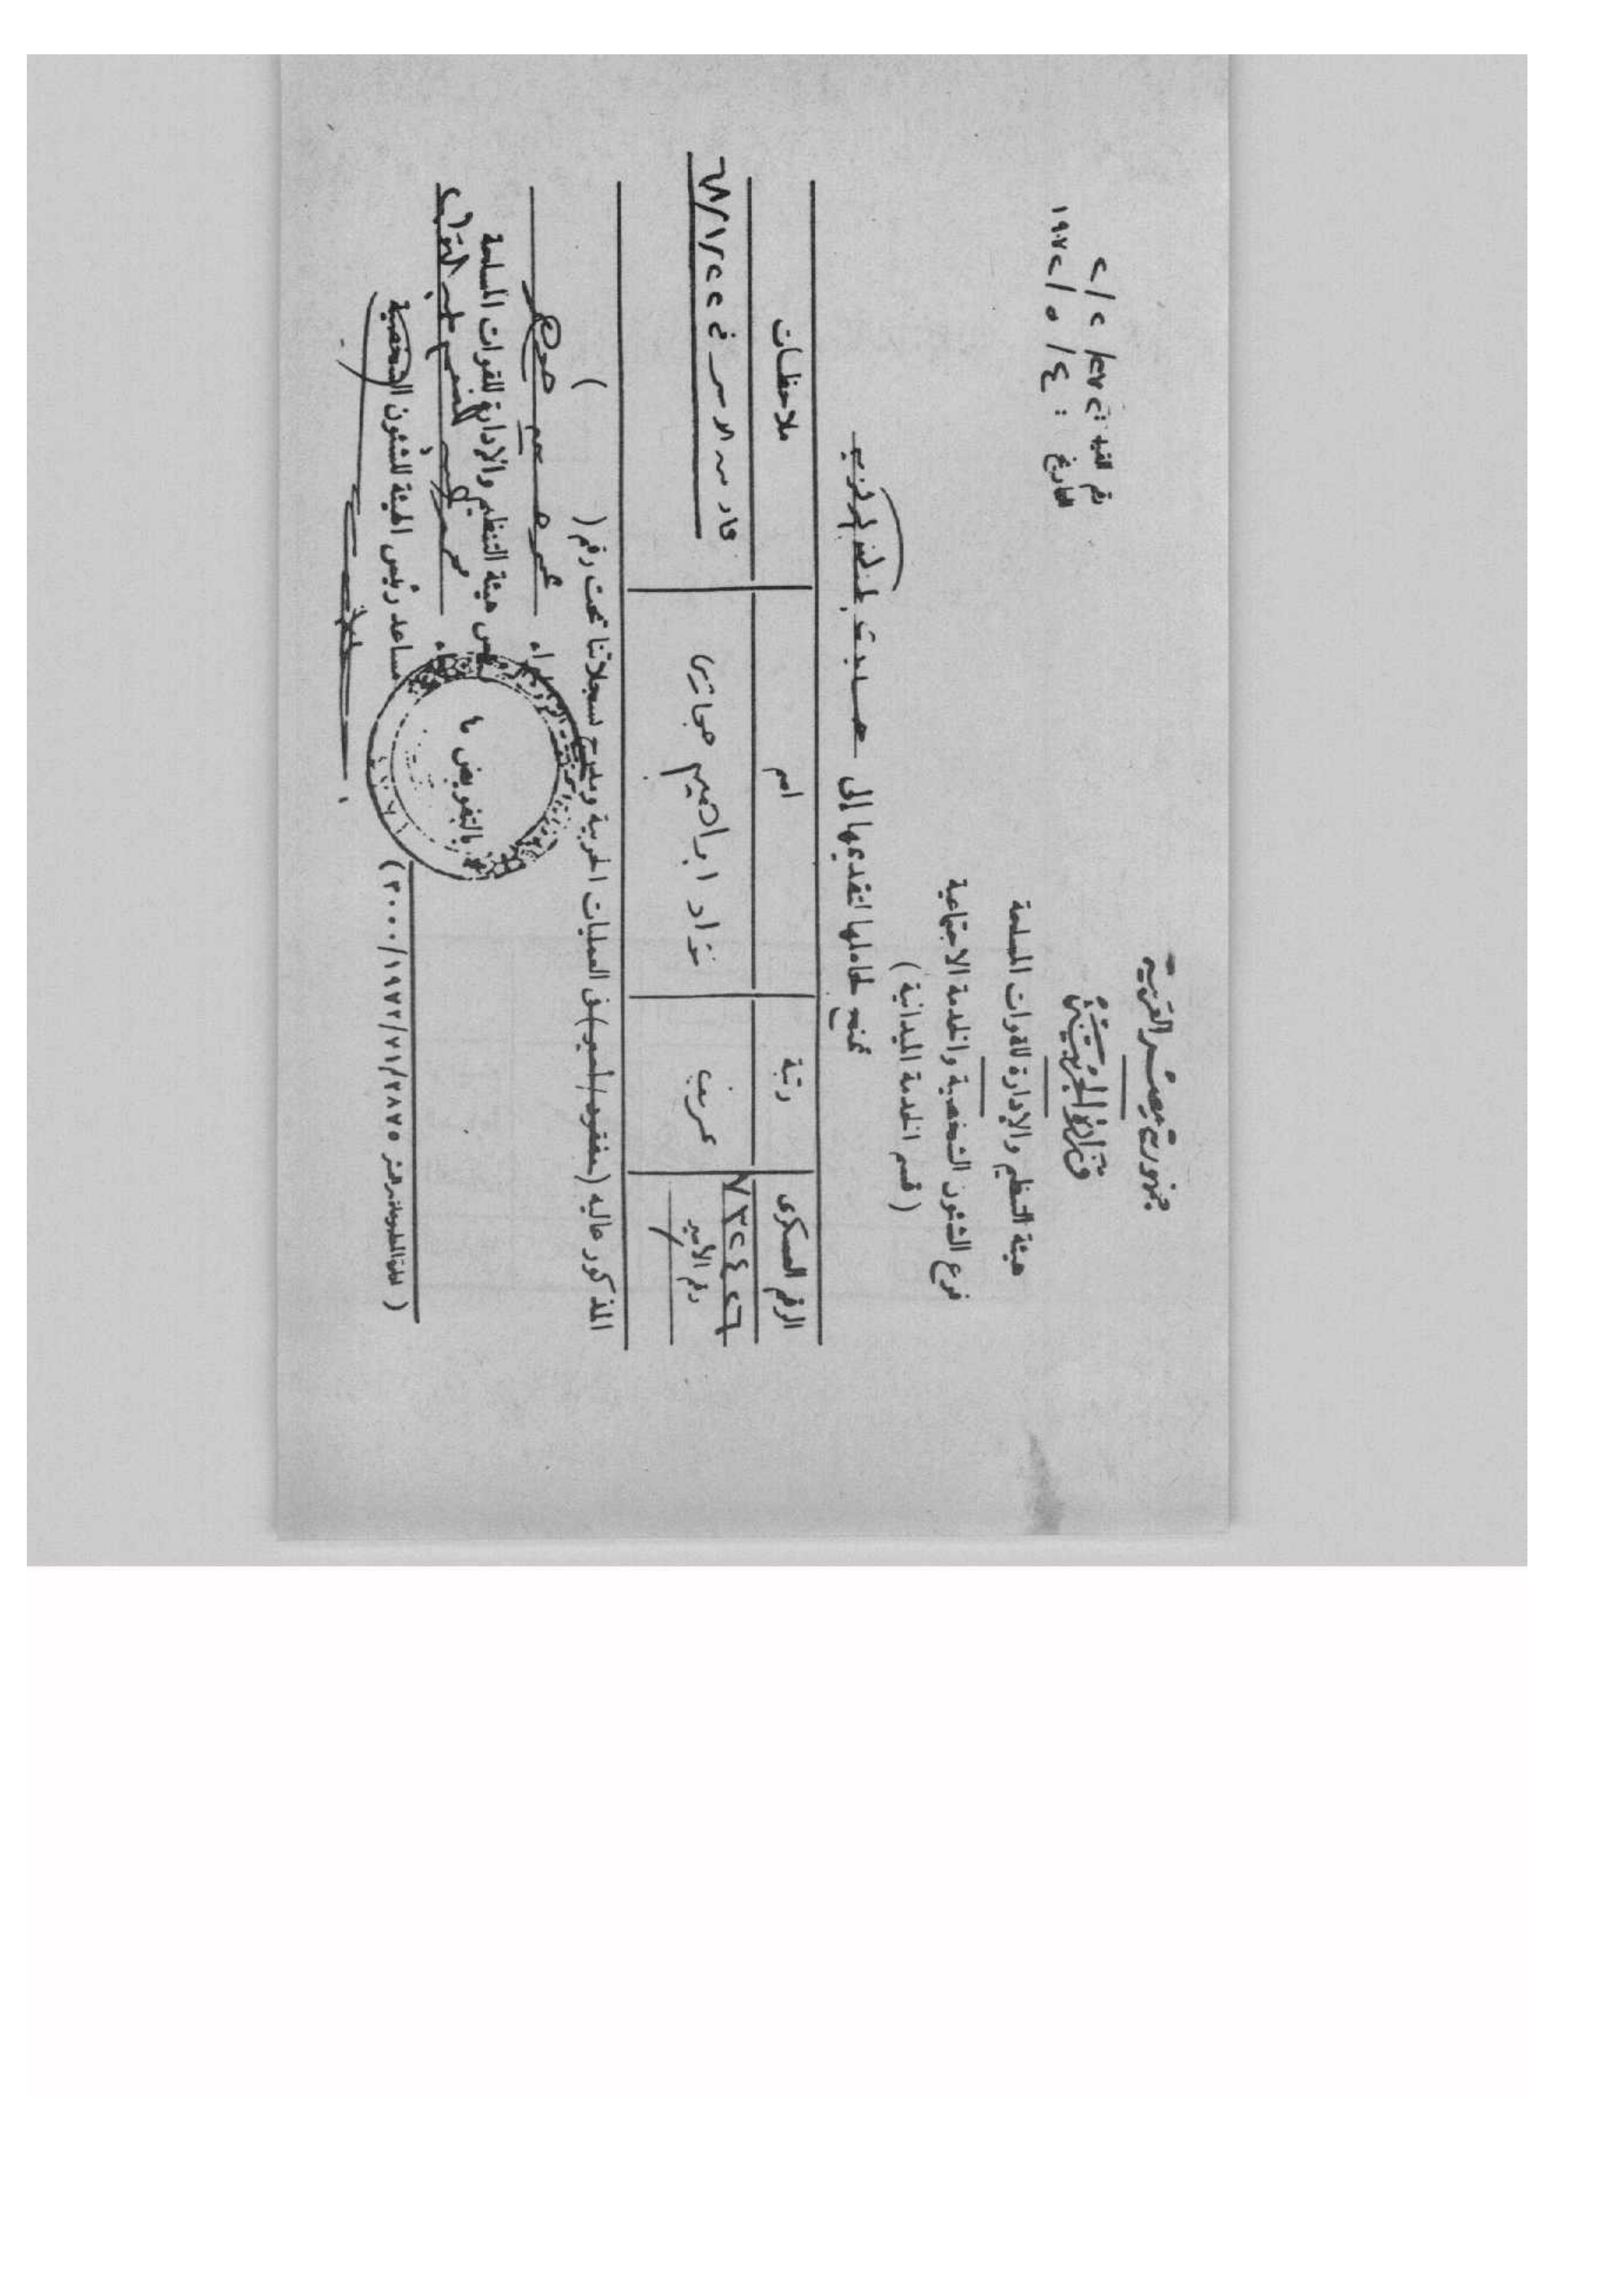 جمهورية مصر العربية
وزارة الحربية
هيئة التنظيم والإدارة للقوات المسلحة
فرع الشئون الشخصية والخدمة الاجتماعية
( قسم الخدمة الميدانية )
رقم القيد :
التاريخ : ٤ / ٥ / ١٩٧٢
تمنح لحاملها لتقديمها إلى
الرقم العسكرى رتبة اسم ملاحظات
٧٣٢٤٢٦ عريف فؤاد ابراهيم حجازى عاد من الاسر فى ٢٢/١/٦٨
رقم الأسير
المذكور عاليه (مفقود/أسير) فى العمليات الحربية ومدرج بسجلاتنا تحت رقم ( )
لواء
رئيس هيئة التنظيم والإدارة للقوات المسلحة
بالتفويض
مساعد رئيس الهيئة للشئون الشخصية
٢٨٧٥/٧١/١٩٧٢/٣٠٠٠ )